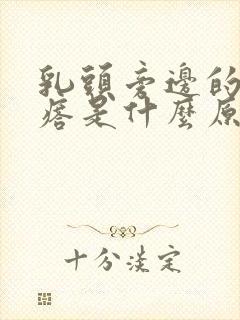 乳頭旁邊的
痞是什麼原
十分淡定